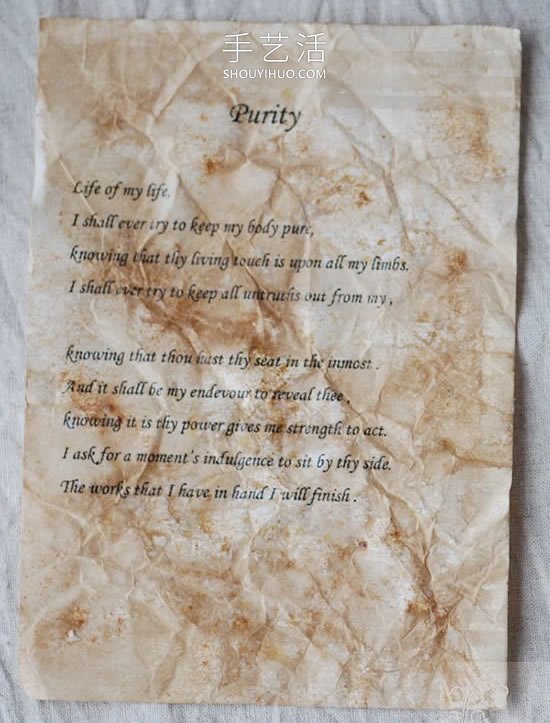 手艺活
SHOUYIHUO.COM
Purity
Life of my life,
I shall ever try to keep my body pure,
knowing that thy living touch is upon all my limbs.
I shall ever try to keep all untruths out from my ,
knowing that thou hast thy seat in the inmost .
And it shall be my endevour to reveal thee ,
knowing it is thy power gives me strength to act.
I ask for a moment's indulgence to sit by thy side.
The works that I have in hand I will finish .